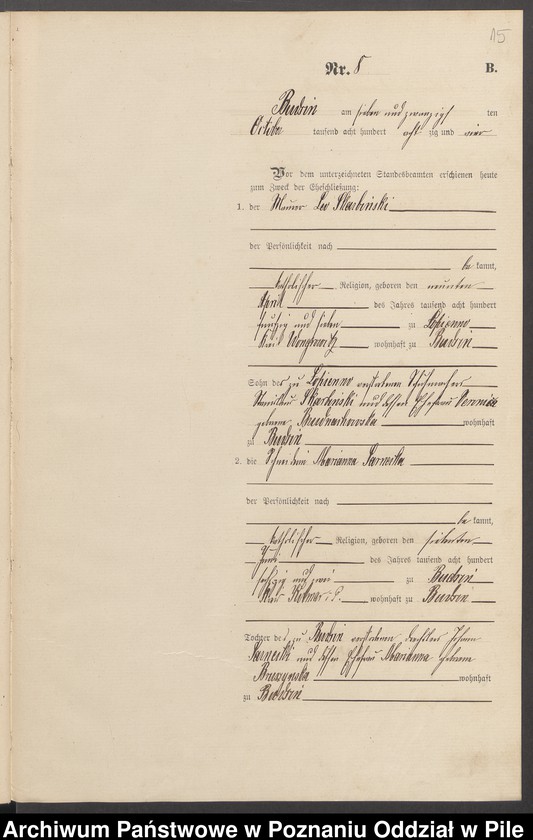 15
Nr. 8 B.
Budsin am sieben und zwanzigsten
October tausend acht hundert achtzig und vier
Vor dem unterzeichneten Standesbeamten erschienen heute
zum Zweck der Eheschließung:
1. der Maurer Leo Skarbinski
der Persönlichkeit nach
bekannt,
katholischer Religion, geboren den neunten
April des Jahres tausend acht hundert
fünfzig und sieben zu Lopienno
Kreis Wongrowitz wohnhaft zu Budsin
Sohn des zu Lopienno verstorbenen Schuhmachers
Stanislaus Skarbinski und dessen Ehefrau
geborene wohnhaft
zu Budsin
2. die Marianna
der Persönlichkeit nach
bekannt,
katholischer Religion, geboren den siebenten
des Jahres tausend acht hundert
sechszig und zwei zu Budsin
Kreis Kolmar i. P. wohnhaft zu Budsin
Tochter des zu Budsin verstorbenen Johann
und dessen Ehefrau Marianna geborene
wohnhaft
zu Budsin
Archiwum Państwowe w Poznaniu Oddział w Pile